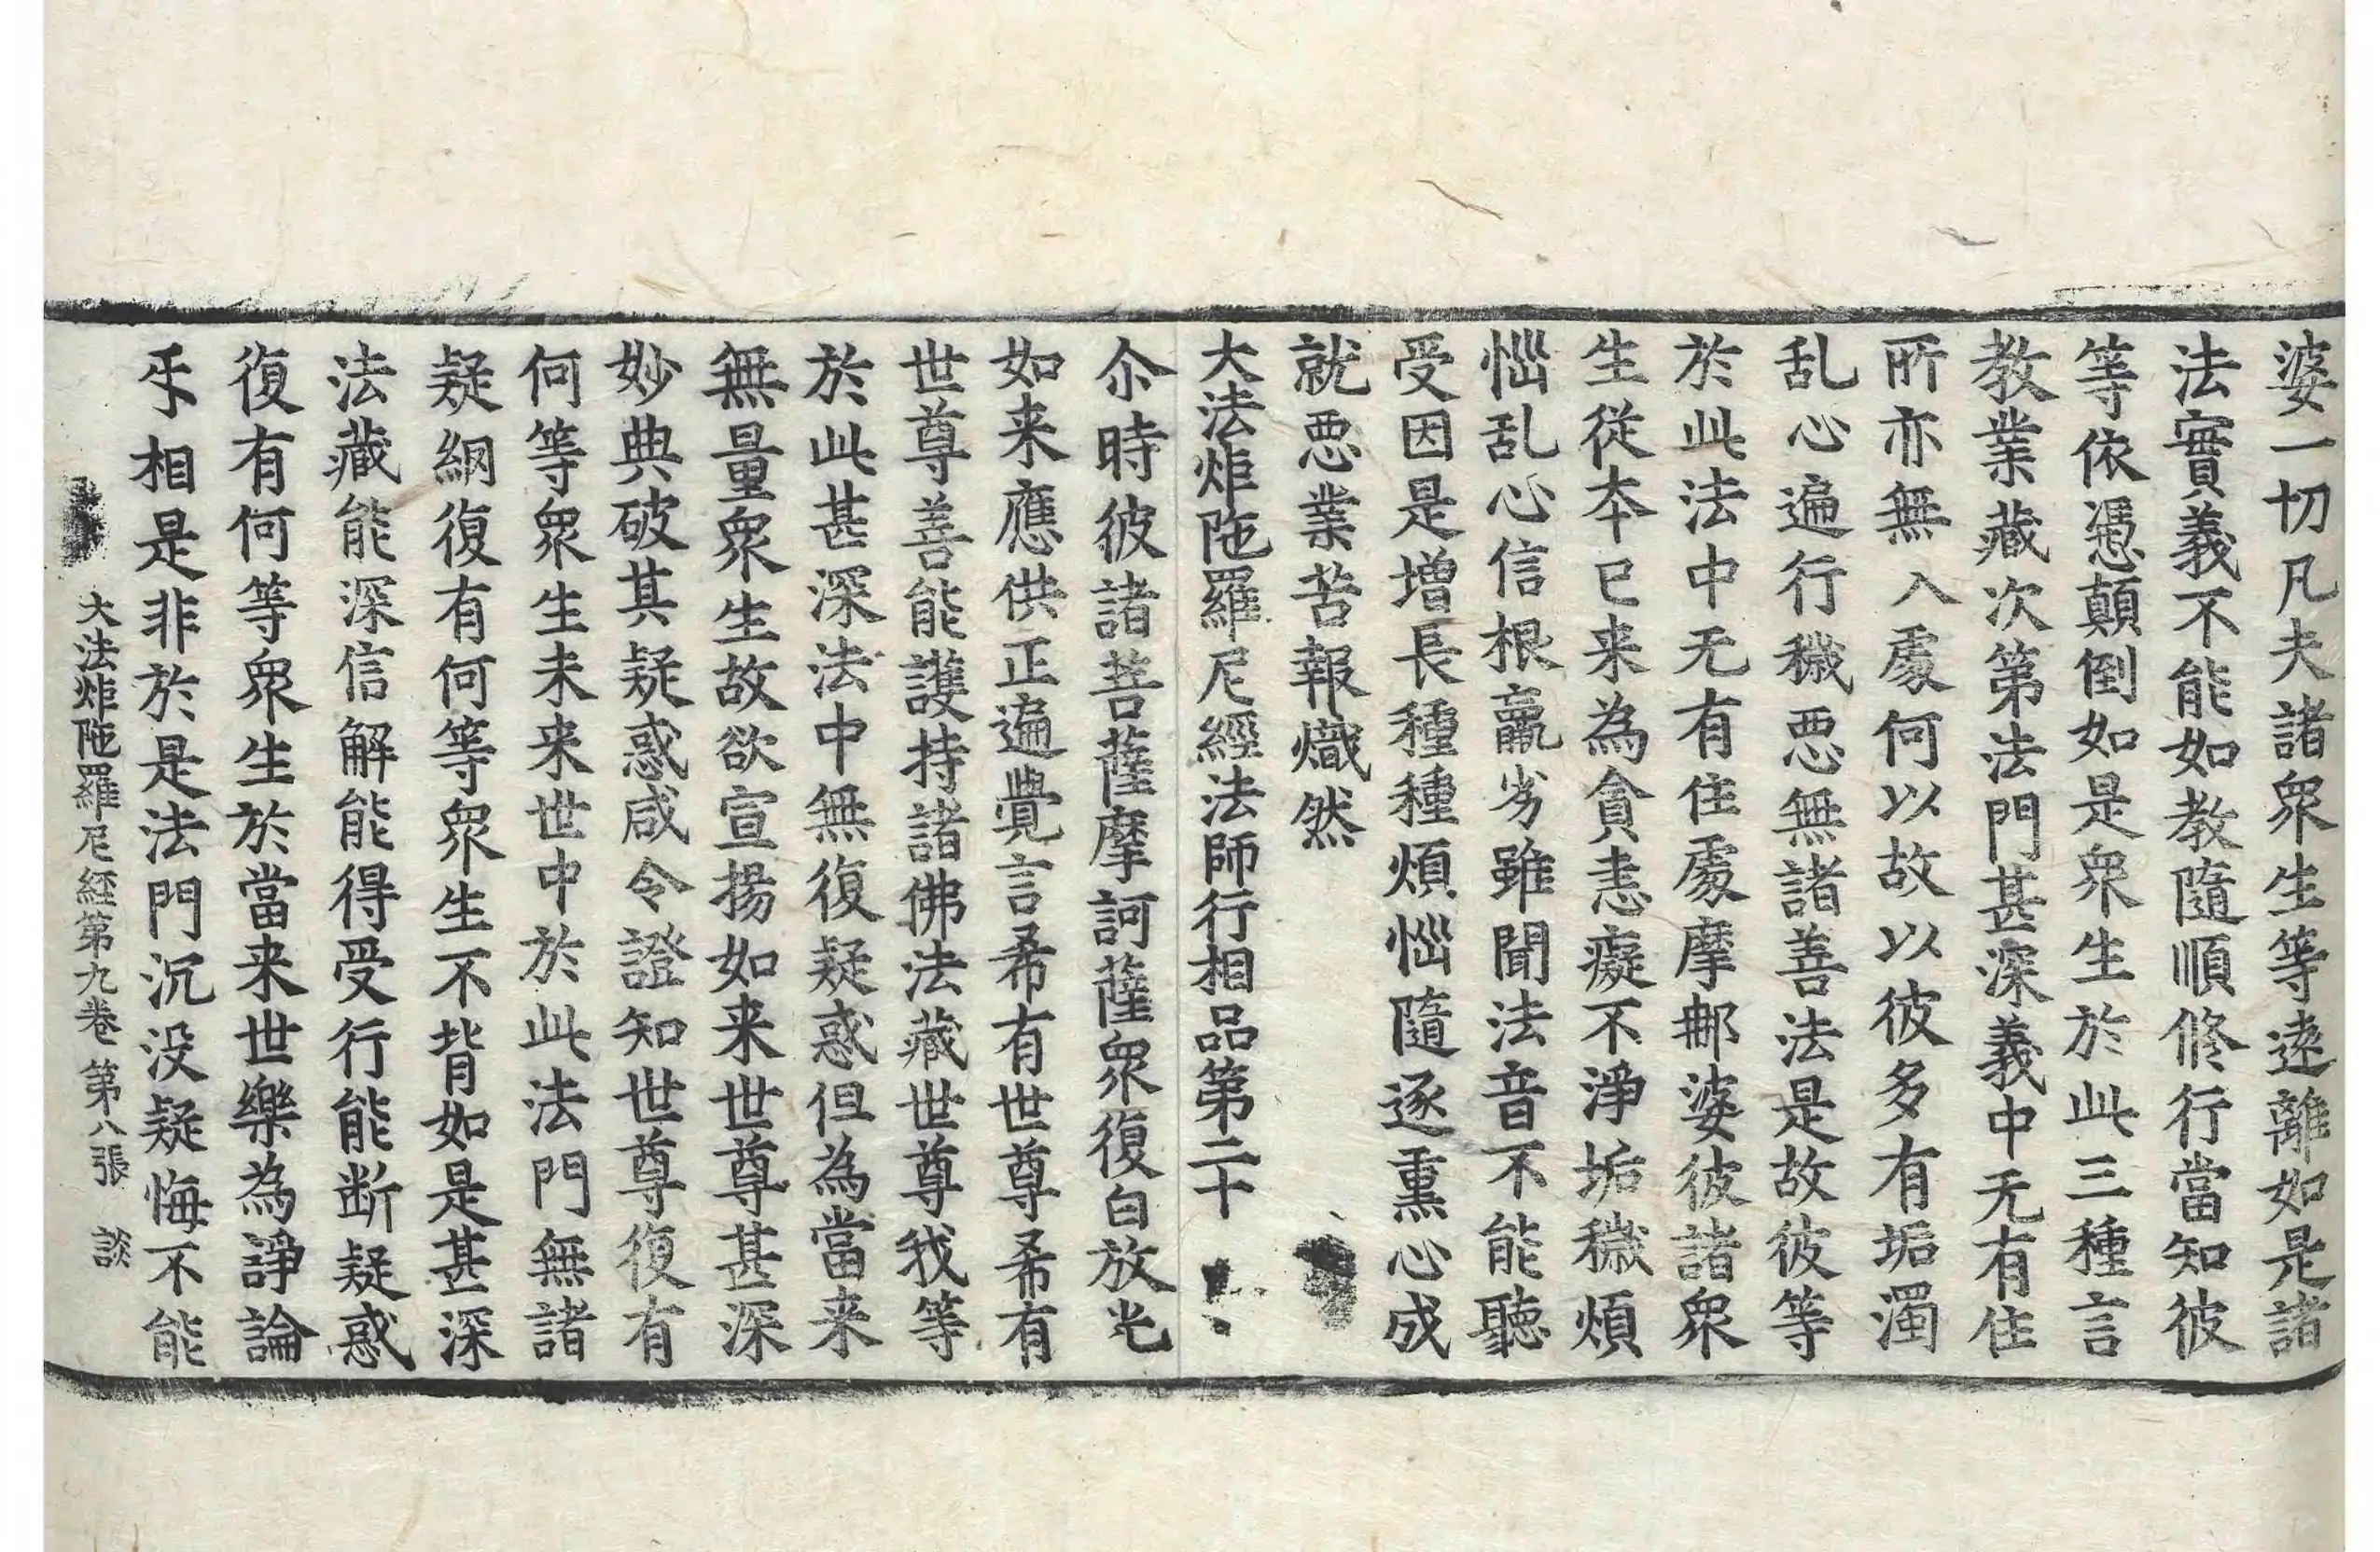 婆一切凡夫諸衆生等遠離如是諸
法實義不能如教隨順修行當知彼
等依憑顛倒如是衆生於此三種言
教業藏次第法門甚深義中无有住
所亦無入處何以故以彼多有垢濁
乱心遍行穢惡無諸善法是故彼等
於此法中无有住處摩那婆彼諸衆
生從本已来為貪恚癡不淨垢穢煩
惱乱心信根羸劣雖聞法音不能聽
受因是增長種種煩惱隨逐熏心成
就惡業苦報熾然
大法炬陁羅尼經法師行相品第二十
尒時彼諸菩薩摩訶薩衆復白放光
如来應供正遍覺言希有世尊希有
世尊善能護持諸佛法藏世尊我等
於此甚深法中無復疑惑但為當来
無量衆生故欲宣揚如来世尊甚深
妙典破其疑惑咸令證知世尊復有
何等衆生未来世中於此法門無諸
疑網復有何等衆生不背如是甚深
法藏能深信解能得受行能断疑惑
復有何等衆生於當来世樂為諍論
乎相是非於是法門沉没疑悔不能
大法炬陁羅尼經第九卷 第八張 談